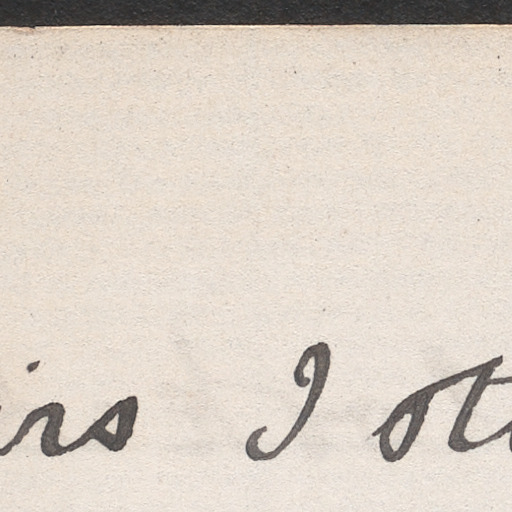 irs I ot